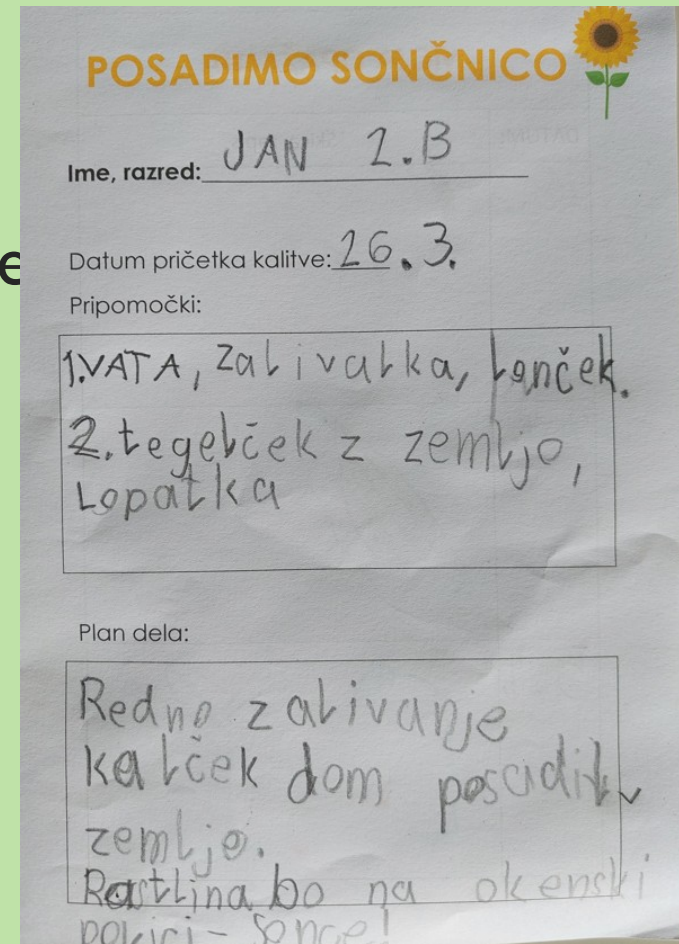 POSADIMO SONČNICO
Ime, razred: JAN 2.B
Datum pričetka kalitve: 26.3.
Pripomočki:
1.VATA, zalivalka, lonček.
2.tegelček z zemljo,
Lopatka
Plan dela:
Redno zalivanje
kalček dom posadil v
zemljo.
Rastlina bo na okenski
polici - sonce!